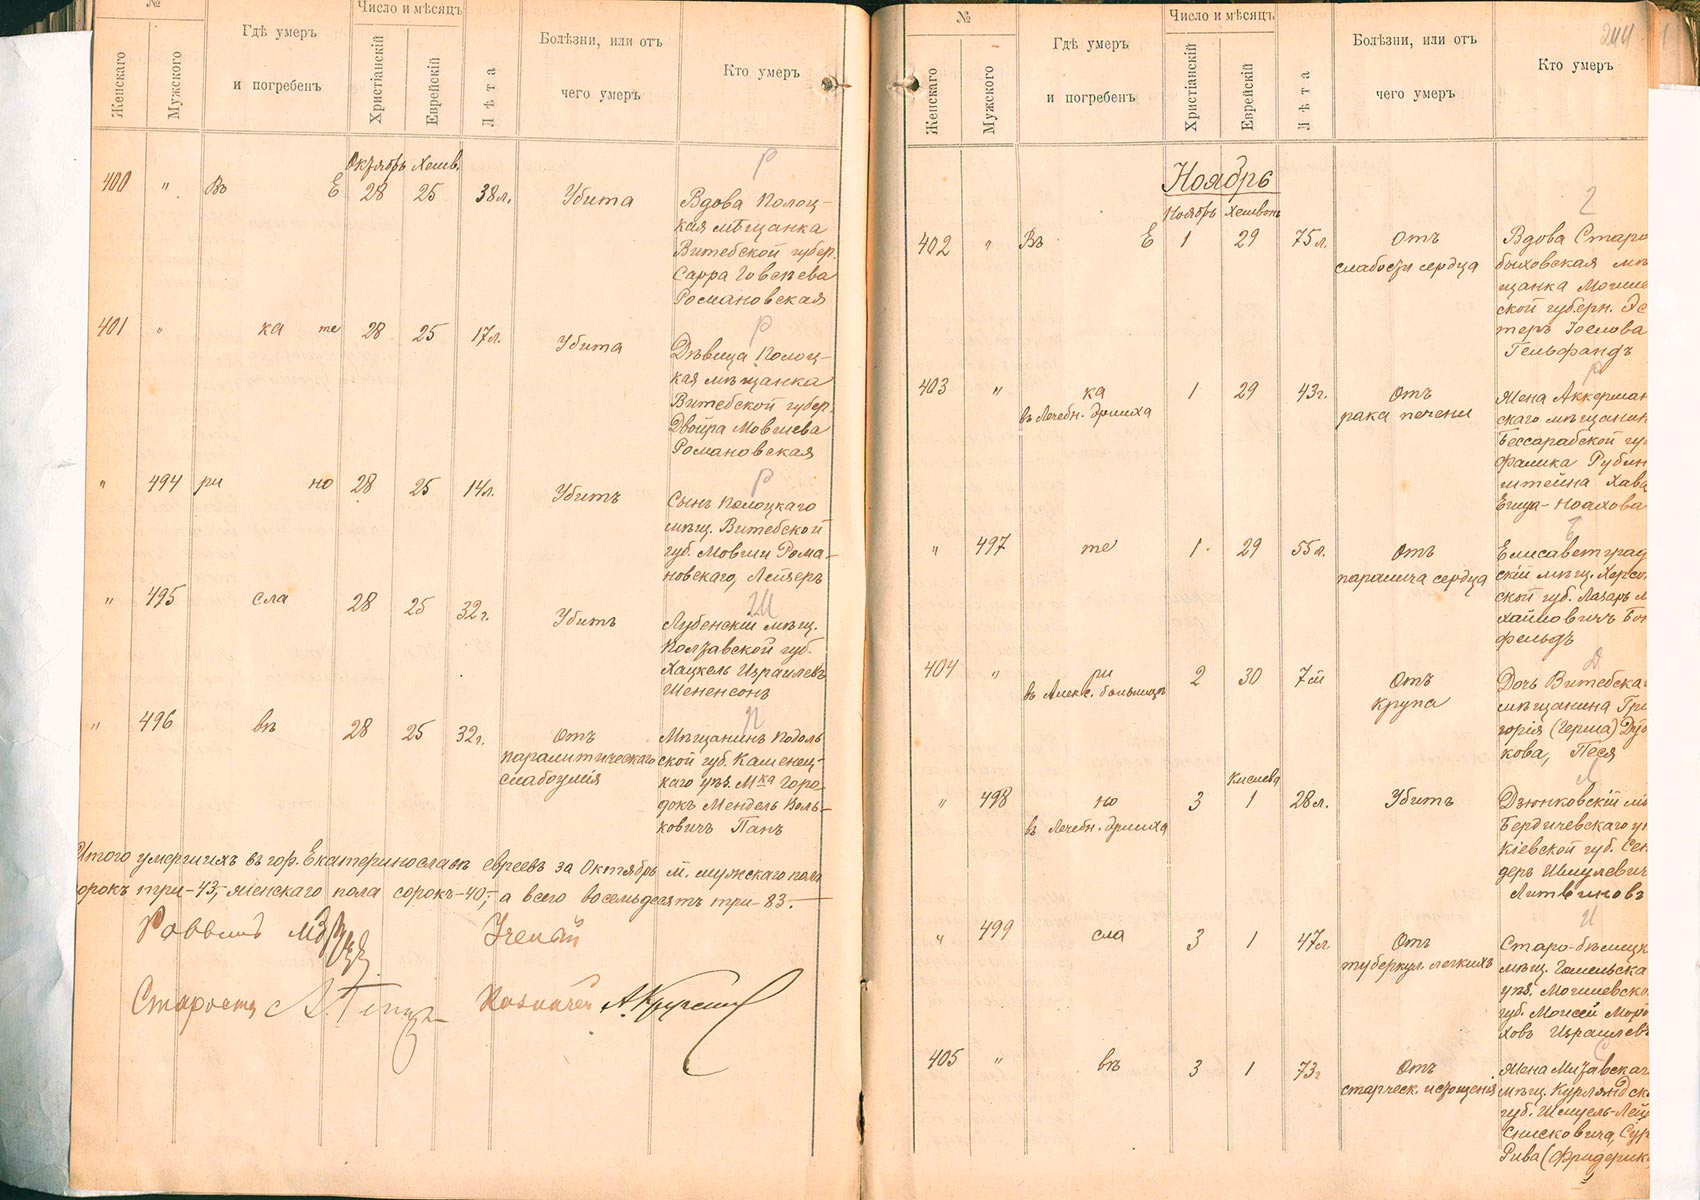 №
Женскаго
Мужского
Гдѣ умеръ
и погребенъ
Число и мѣсяцъ
Христіанскій
Еврейскій
Лѣта
Болѣзни, или отъ
чего умеръ
Кто умеръ
Октябрь Хешв.
400 " Въ Е 28 25 38 л. Убита
Р
Вдова Полоц-
кая мѣщанка
Витебской губер.
Сарра Говсѣева
Романовская
401 " ка те 28 25 17 л. Убита
Р
Дѣвица Полоц-
кая мѣщанка
Витебской губер.
Двойра Мовшева
Романовская
" 494 ри но 28 25 14 л. Убитъ
Р
Сынъ Полоцкаго
мѣщ. Витебской
губ. Мовши Рома-
новскаго, Лейзеръ
" 495 сла 28 25 32 г. Убитъ
Ш
Лубенскій мѣщ.
Полтавской губ.
Хацкель Израилевъ
Шененсонъ
" 496 вѣ 28 25 32 г. Отъ
паралитическаго
слабоумія
П
Мѣщанинъ Подоль
ской губ. Каменец-
каго уѣз. Мка Горо-
докъ Мендель Воль-
ковичъ Панъ
Итого умершихъ въ гор. Екатеринославѣ евреевъ за Октябрь м. мужскаго пола
орокъ три-43, женскаго пола сорокъ-40, а всего восемьдесятъ три-83.
Раввинъ
Ученый
Староста
Казначей
№
Женскаго
Мужского
Гдѣ умеръ
и погребенъ
Число и мѣсяцъ
Христіанскій
Еврейскій
Лѣта
Болѣзни, или отъ
чего умеръ
Кто умеръ
244
Ноябрь
Ноябрь Хешвонъ
402 " Въ Е 1 29 75 л. Отъ
слабости сердца
Г
Вдова Старо
быховская мѣ
щанка Могиле
ской губерн. Эс
теръ Іослова
Гельфандъ
403 " ка 1 29 43 г. Отъ
въ Лечебн. Эрлиха
рака печени
Р
Жена Аккерман
скаго мѣщанин
Бессарабской гу
Фалика Рубин
штейна Хава
Ента-Ноахова
" 497 те 1 29 55 л. Отъ
паралича сердца
Б
Елисаветград
скій мѣщ. Херсо
ской губ. Лазарь М
хаймовичъ Бон
фельдъ
404 " ри 2 30 7 м Отъ
въ Алекс. больницѣ
крупа
Д
Дочь Витебска
мѣщанина Гри
горія (Герша) Дуб
кова, Песя
Кислева
" 498 но 3 1 28 л. Убитъ
въ Лечебн. Эрлиха
Л
Дзюнковскій мѣ
Бердичевскаго у
Кіевской губ. Сен
деръ Шмулевич
Литвиновъ
" 499 сла 3 1 47 л Отъ
туберкул. легкихъ
И
Старо-бѣлицк
мѣщ. Гомельска
уѣз. Могилевско
губ. Моисей Морд
ховъ Израилевъ
405 " вѣ 3 1 73 г Отъ
старческ. истощенія
С
Жена Митавскаг
мѣщ. Курляндск
губ. Шмуель-Лей
Рива (Фридерик